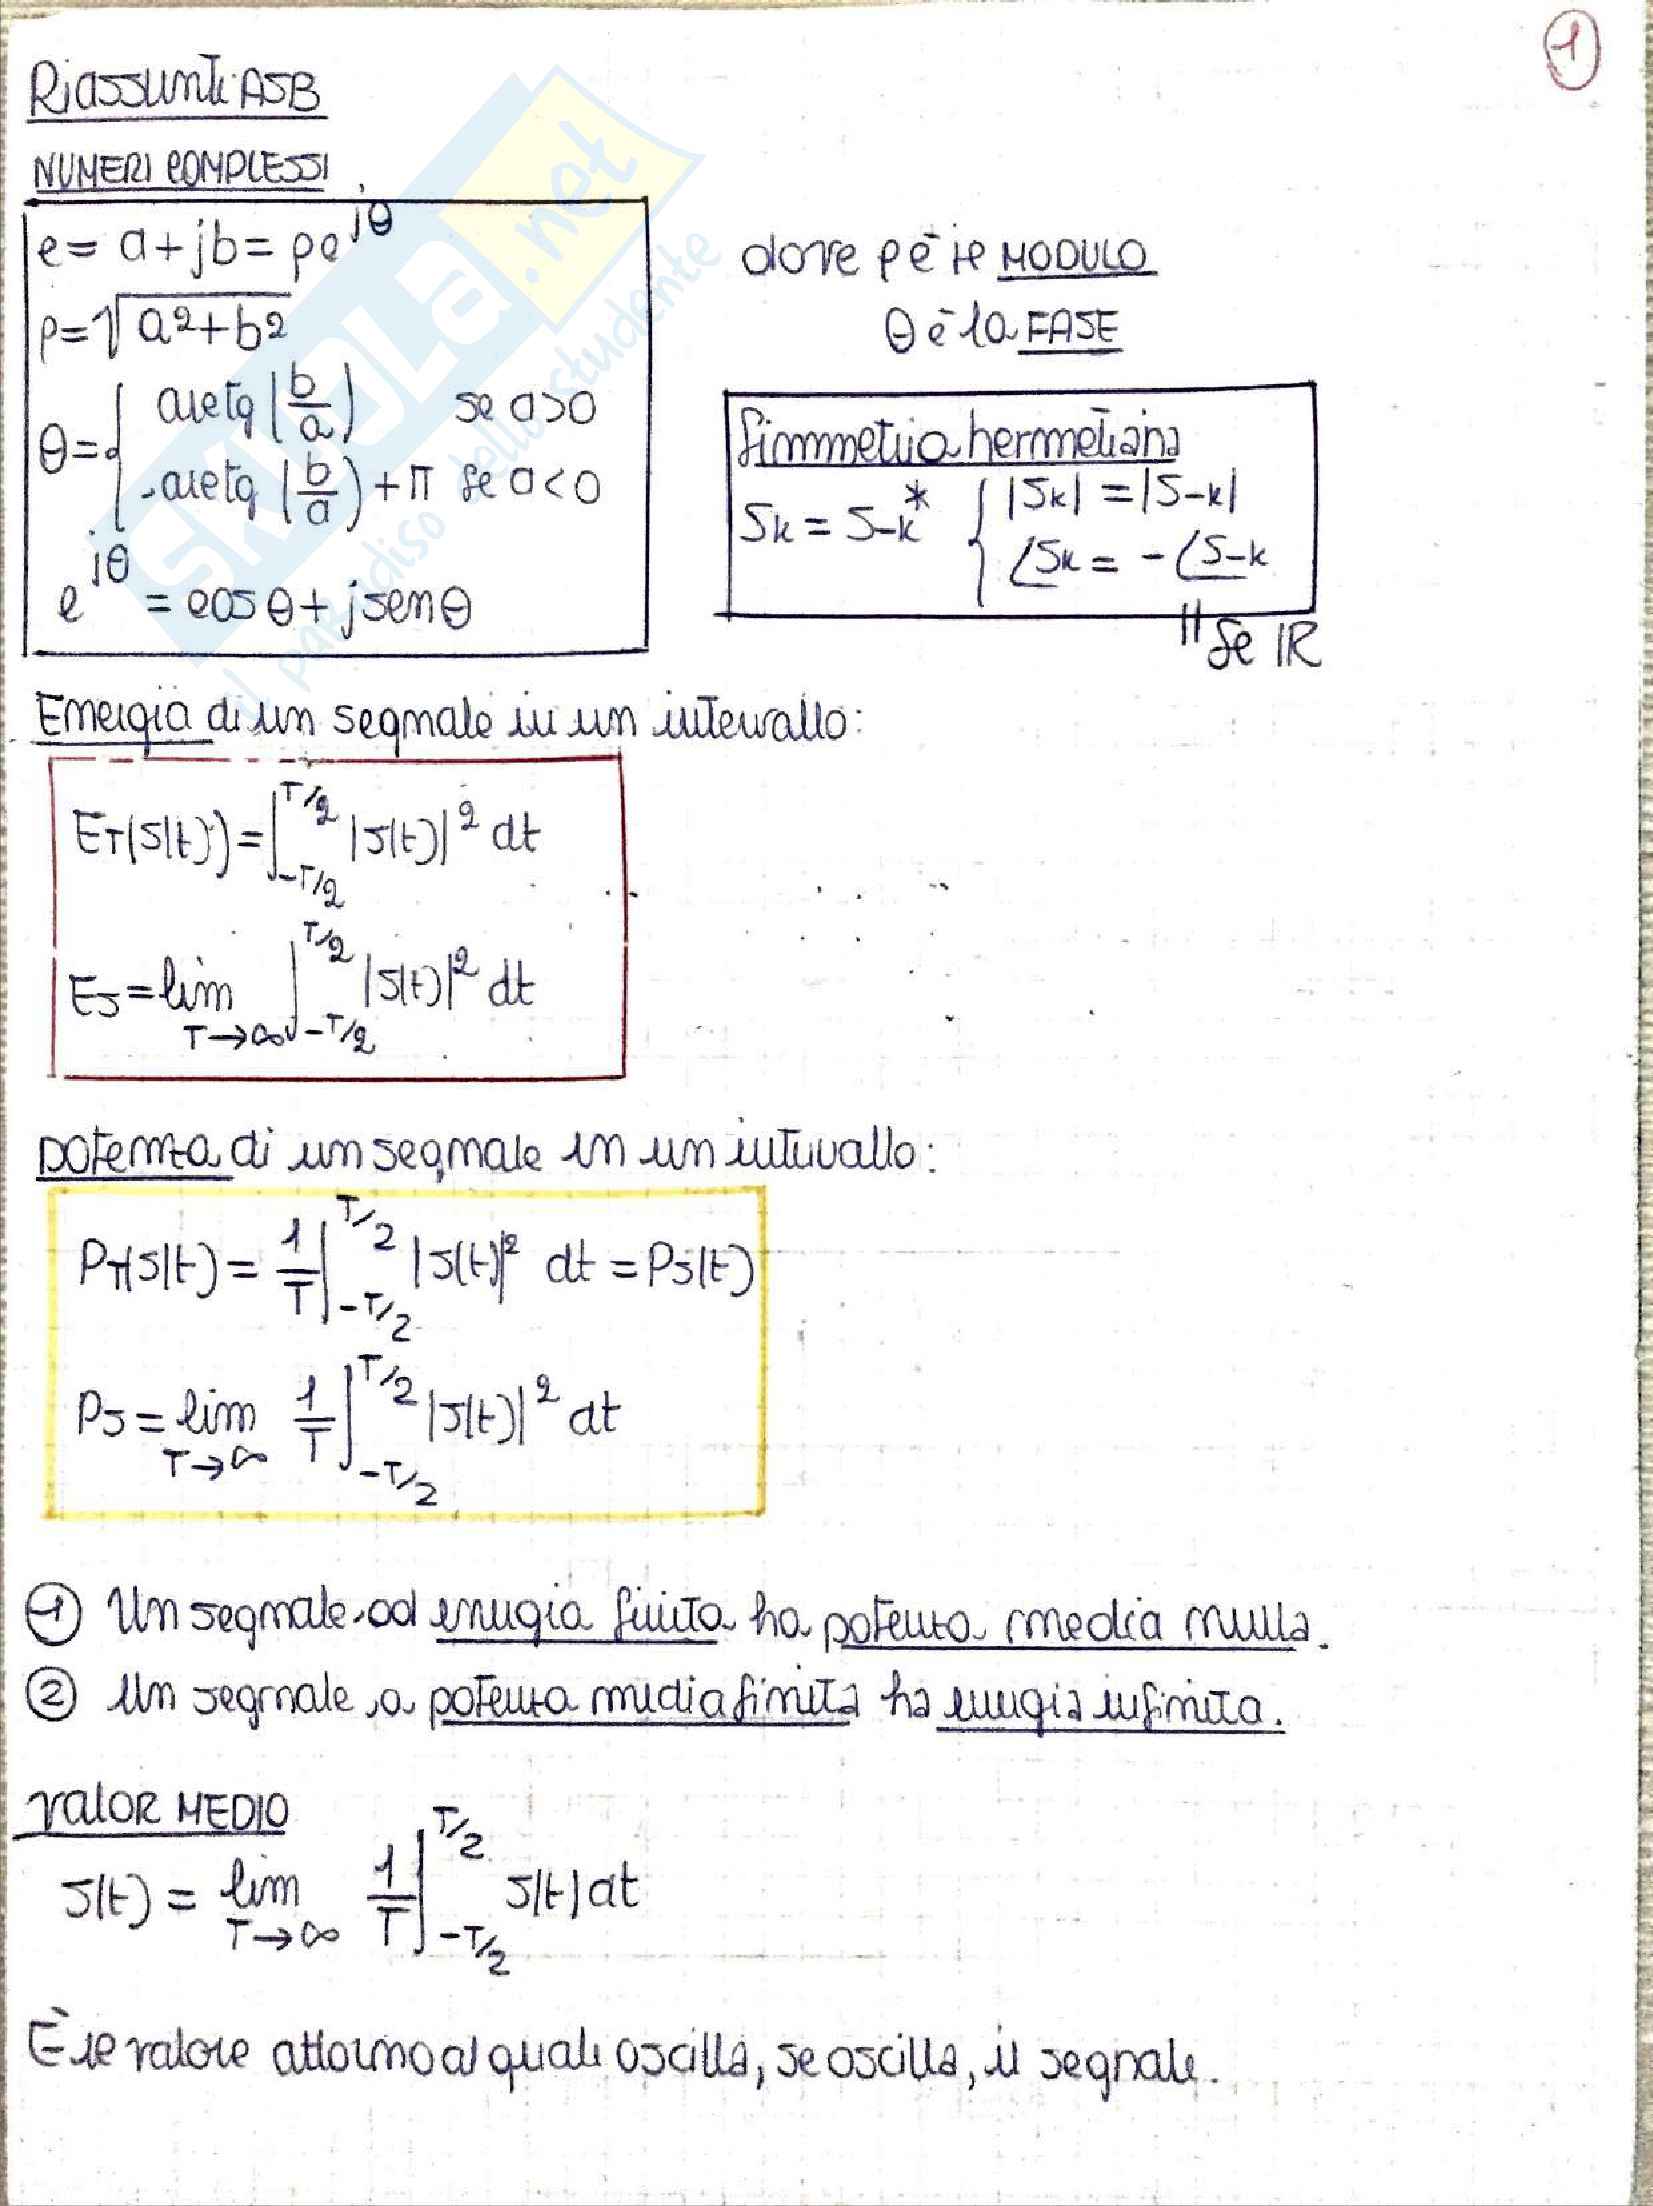 1
Riassunti ASB
NUMERI COMPLESSI
c = a + jb = ρe^{jθ}
ρ = √(a² + b²)
θ = { arctg (b/a) se a>0
arctg (b/a) + π se a<0
e^{jθ} = cosθ + jsenθ
dove ρ è il MODULO
θ è la FASE
Simmetria hermetiana
Sk = S-k* { |Sk| = |S-k|
∠Sk = -∠S-k
Se IR
Energia di un segnale in un intervallo:
E_T(s(t)) = ∫_{-T/2}^{T/2} |s(t)|² dt
Es = lim_{T→∞} ∫_{-T/2}^{T/2} |s(t)|² dt
Potenza di un segnale in un intervallo:
P_T(s(t) = 1/T ∫_{-T/2}^{T/2} |s(t)|² dt = Ps(t)
Ps = lim_{T→∞} 1/T ∫_{-T/2}^{T/2} |s(t)|² dt
① Un segnale ad energia finita ha potenza media nulla.
② Un segnale a potenza media finita ha energia infinita.
VALOR MEDIO
s(t) = lim_{T→∞} 1/T ∫_{-T/2}^{T/2} s(t) dt
È il valore attorno al quale oscilla, se oscilla, il segnale.
SKUOLA.net
il paradiso dello studente